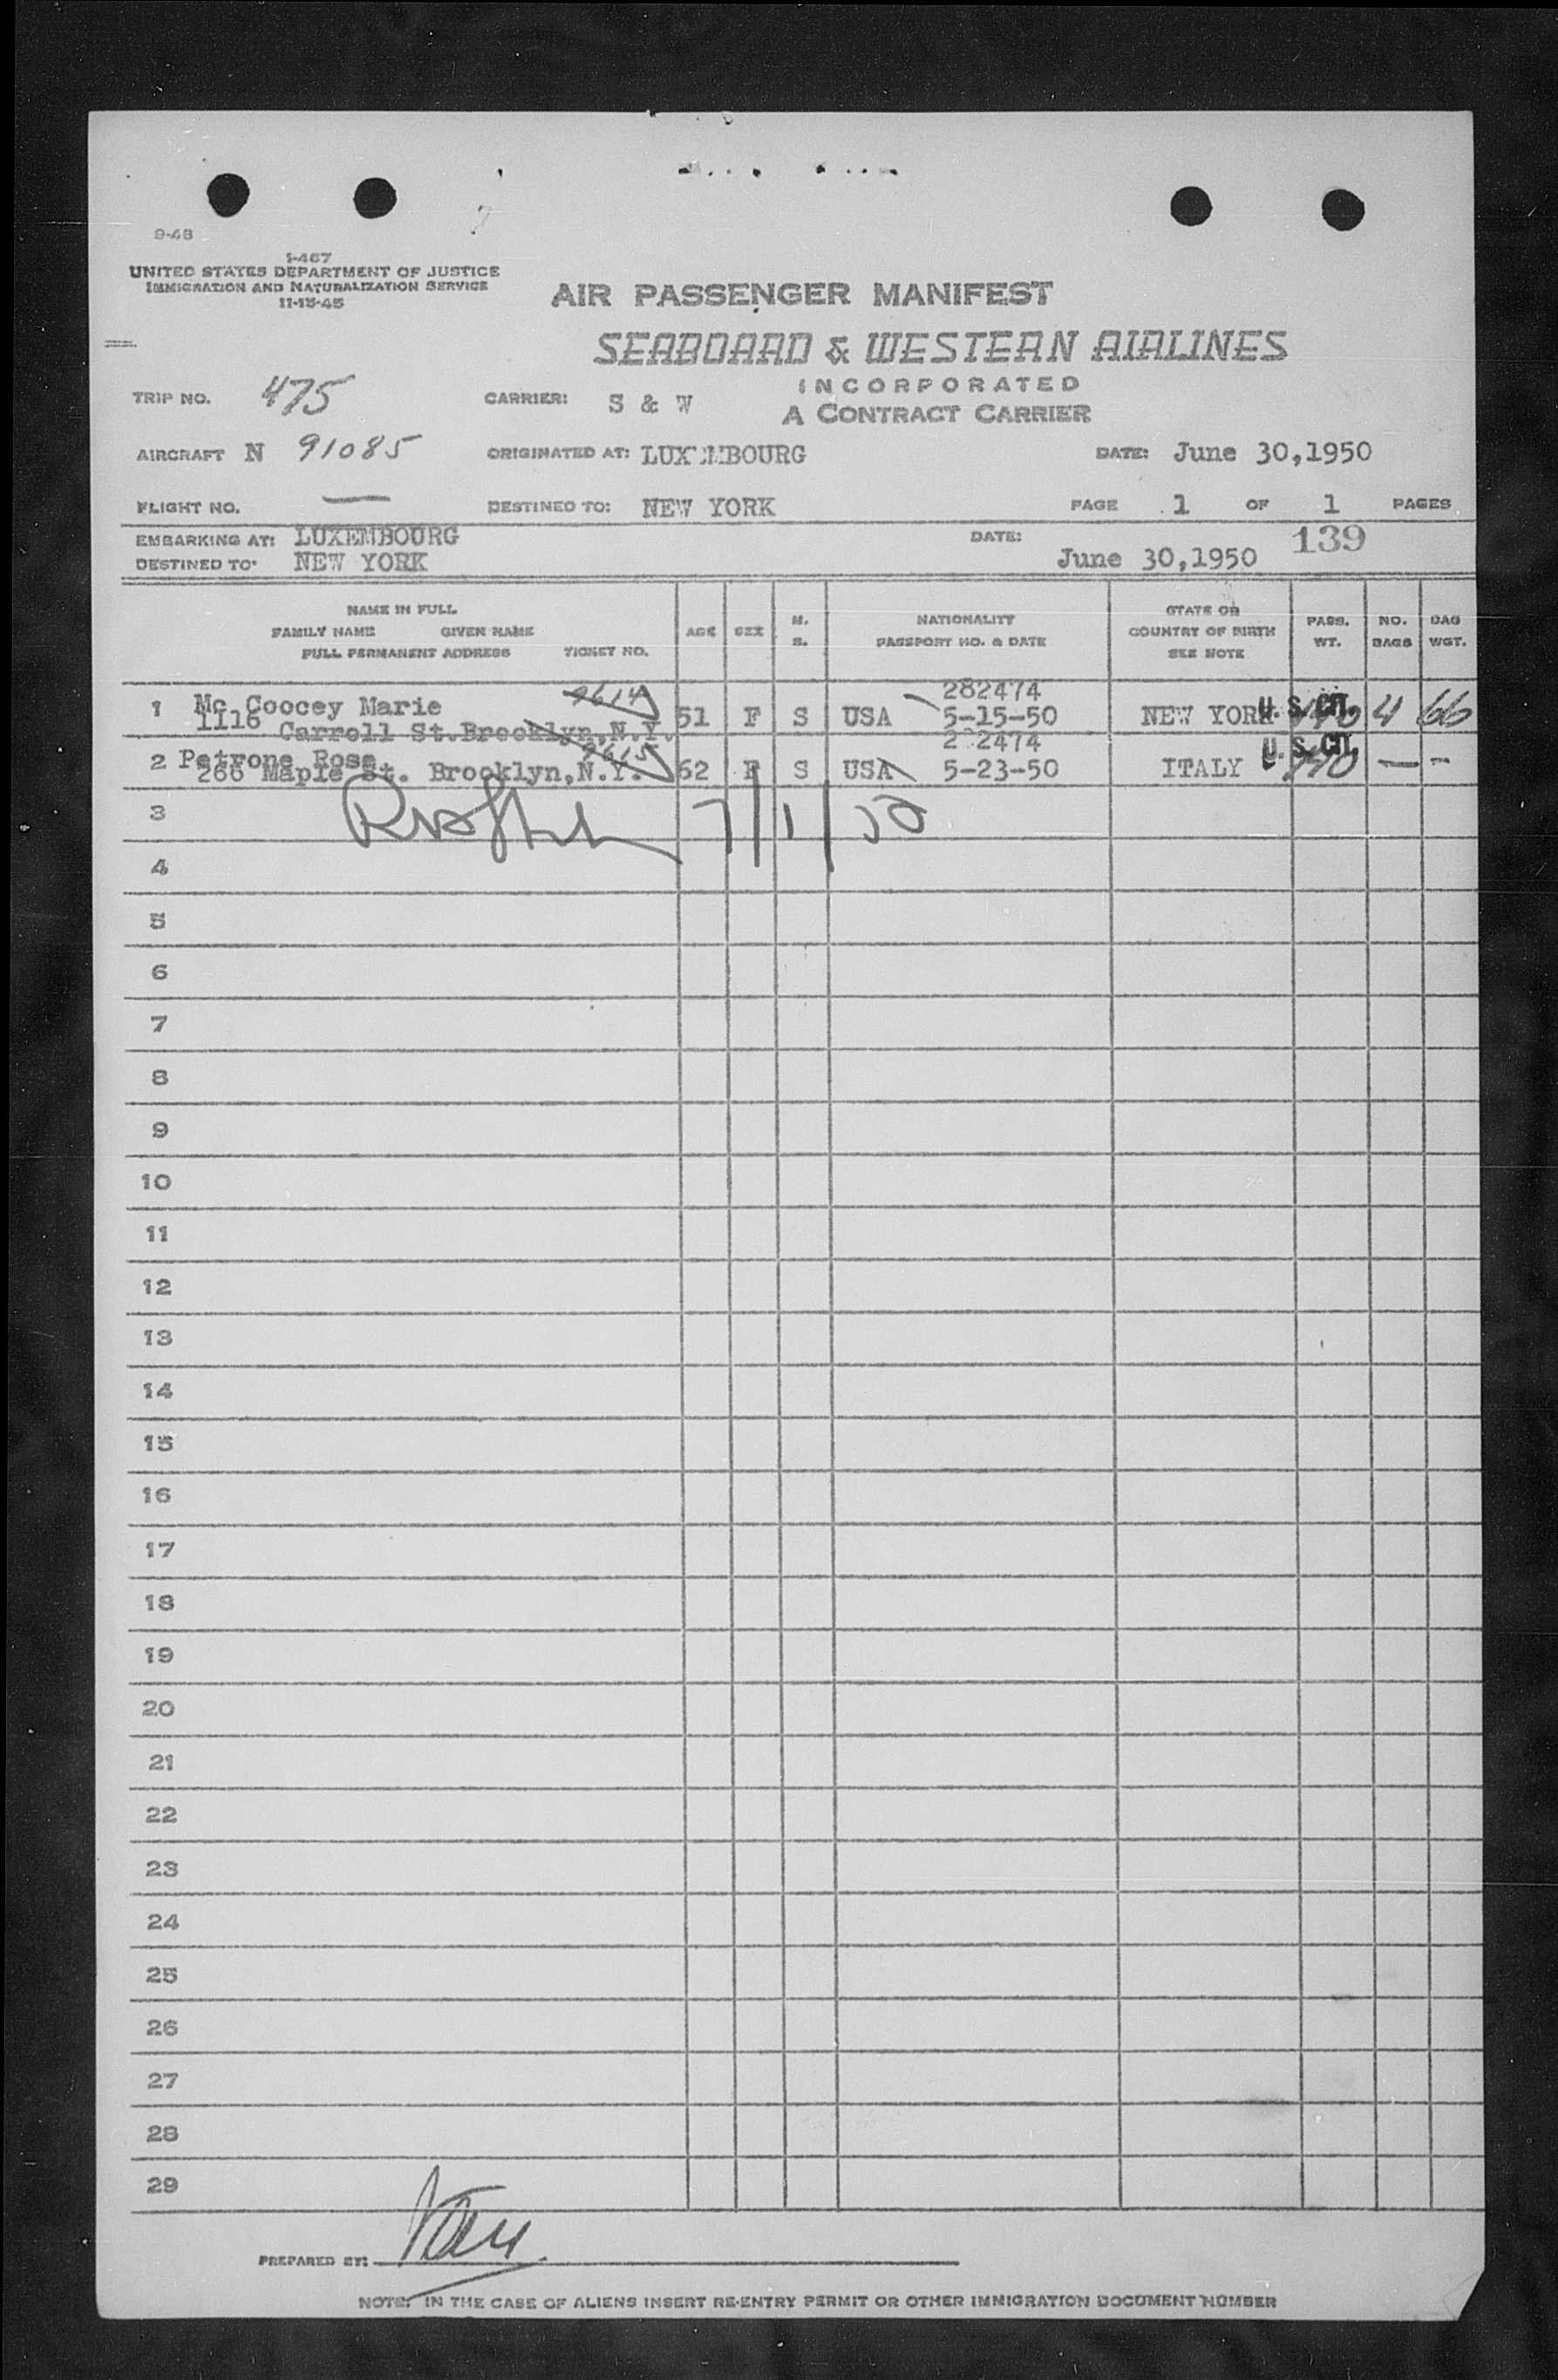 9-48
1-467
UNITED STATES DEPARTMENT OF JUSTICE
IMMIGRATION AND NATURALIZATION SERVICE
11-15-45
AIR PASSENGER MANIFEST
SEABOARD & WESTERN AIRLINES
INCORPORATED
A CONTRACT CARRIER
TRIP NO. 475 CARRIER: S & W
AIRCRAFT N 91085 ORIGINATED AT: LUXEMBOURG DATE: June 30,1950
FLIGHT NO. — DESTINED TO: NEW YORK PAGE 1 OF 1 PAGES
EMBARKING AT: LUXEMBOURG DATE: June 30,1950 139
DESTINED TO: NEW YORK
NAME IN FULL
FAMILY NAME GIVEN NAME
FULL PERMANENT ADDRESS TICKET NO.
AGE SEX M. S.
NATIONALITY
PASSPORT NO. & DATE
STATE OR
COUNTRY OF BIRTH
SEE NOTE
PASS. WT.
NO. BAGS
BAG WGT.
1 Mc Coocey Marie 9614 282474
1116 Carroll St.Brooklyn,N.Y. 51 F S USA 5-15-50 NEW YORK U. S. CIT. 4 66
2 Petrone Rose 9615 2 2474
266 Maple St. Brooklyn,N.Y. 62 F S USA 5-23-50 ITALY U. S. CIT. — -
3 7/1/50
4
5
6
7
8
9
10
11
12
13
14
15
16
17
18
19
20
21
22
23
24
25
26
27
28
29
PREPARED BY:
NOTE: IN THE CASE OF ALIENS INSERT RE-ENTRY PERMIT OR OTHER IMMIGRATION DOCUMENT NUMBER